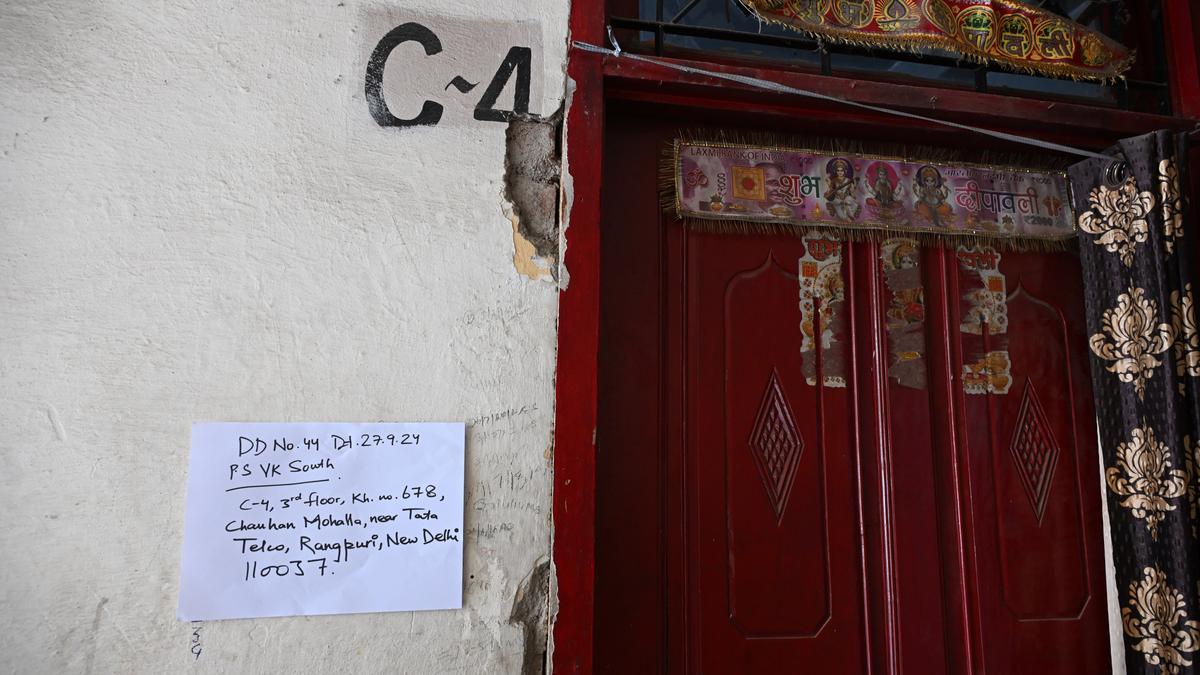 C~4
LAXMI BANK OF INDIA
शुभ
दीपावली
DD No. 44 Dt. 27.9.24
P.S VK South
C-4, 3rd floor, Kh. no. 678,
Chauhan Mohalla, near Tata
Telco, Rangpuri, New Delhi
110037.